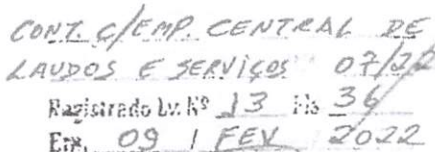 CONT. C/EMP. CENTRAL DE
LAUDOS E SERVIÇOS 07/22
Registrado Lv. Nº 13 Fls 36
Em, 09 / FEV 2022